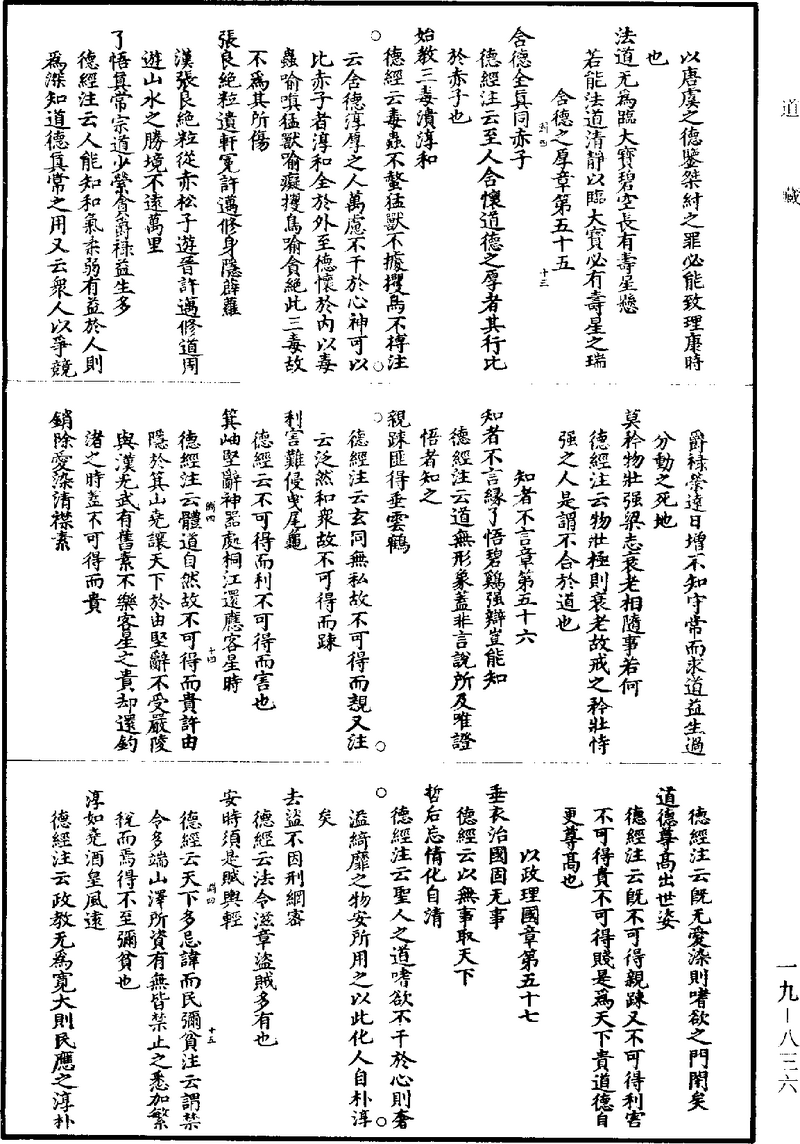 道藏
以唐虞之德鑒桀紂之罪必能致理康時
也
法道无爲臨大寶碧空長有壽星懸
若能法道清靜以臨大寶必有壽星之瑞
含德之厚章第五十五
含德全真同赤子
德經注云至人含懷道德之厚者其行比
於赤子也
始教三毒潰淳和
德經云毒蟲不螫猛獸不據攫鳥不搏注
云含德淳厚之人萬慮不干於心神可以
比赤子者淳和全於外至德懷於内以毒
蟲喻嗔猛獸喻癡攫鳥喻貪絶此三毒故
不爲其所傷
張良絶粒遺軒冕許邁修身隱薜蘿
漢張良絶粒從赤松子遊晉許邁修道周
遊山水之勝境不遠萬里
了悟真常宗道少縈貪爵禄益生多
德經注云人能知和氣柔弱有益於人則
爲深知道德真常之用又云衆人以爭競
爵禄榮遠日增不知守常而求道益生過
分動之死地
莫矜物壯强梁志衰老相隨事若何
德經注云物壯極則衰老故戒之矜壯恃
强之人是謂不合於道也
知者不言章第五十六
知者不言緣了悟碧鷄强辯豈能知
德經注云道無形象蓋非言說所及唯證
悟者知之
親踈匪得垂雲鶴
德經注云玄同無私故不可得而親又注
云泛然和衆故不可得而踈
利害難侵曳尾龜
德經云不可得而利不可得而害也
箕岫堅辭神器處桐江還應客星時
德經注云體道自然故不可得而貴許由
隱於箕山堯讓天下於由堅辭不受嚴陵
與漢光武有舊素不樂客星之貴却還釣
渚之時蓋不可得而貴
銷除愛染清襟素
德經注云既无愛染則嗜欲之門閉矣
道德尊高出世姿
德經注云既不可得親踈又不可得利害
不可得貴不可得賤是爲天下貴道德自
更尊高也
以政理國章第五十七
垂衣治國因无事
德經云以無事取天下
哲后忘情化自清
德經注云聖人之道嗜欲不干於心則奢
溢綺靡之物安所用之以此化人自朴淳
矣
去盜不因刑網密
德經云法令滋章盜賊多有也
安時須是賦輿輕
德經云天下多忌諱而民彌貧注云謂禁
令多端山澤所資有無皆禁止之悉加繁
稅而焉得不至彌貧也
淳如堯酒皇風遠
德經注云政教无爲寬大則民應之淳朴
一九－八三六